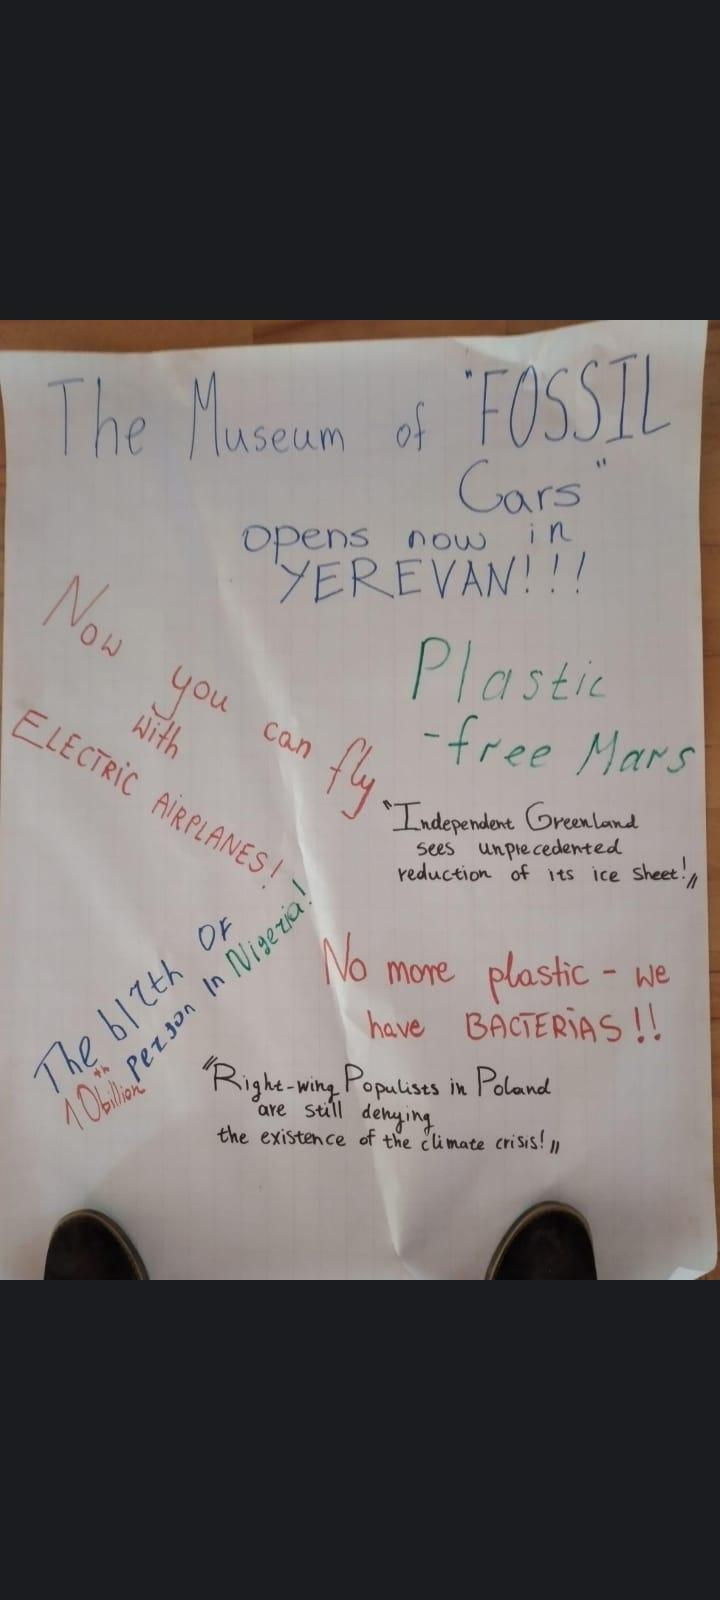 The Museum of "FOSSIL
Cars"
opens now in
YEREVAN!!!
Now you can fly
with
ELECTRIC AIRPLANES!
Plastic
-free Mars
"Independent Greenland
sees unprecedented
reduction of its ice sheet!"
The birth OF
10th billion person in Nigeria!
No more plastic - we
have BACTERIAS!!
"Right-wing Populists in Poland
are still denying
the existence of the climate crisis!"